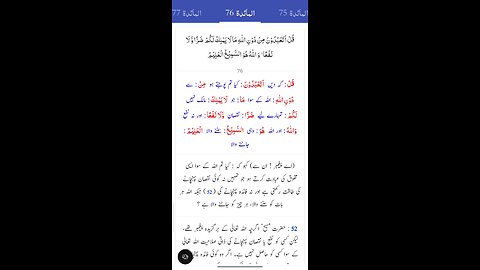 المآئدة 75
المآئدة 76
المآئدة 77
قُلْ اَتَعْبُدُوْنَ مِنْ دُوْنِ اللّٰهِ مَا لَا يَمْلِكُ لَكُمْ ضَرًّا وَّلَا
نَفْعًا ؕ وَ اللّٰهُ هُوَ السَّمِيْعُ الْعَلِيْمُ
76
قُلْ : کہہ دیں اَتَعْبُدُوْنَ : کیا تم پوجتے ہو مِنْ : سے
دُوْنِ اللّٰهِ : اللہ کے سوا مَا : جو لَا يَمْلِكُ : مالک نہیں
لَكُمْ : تمہارے لیے ضَرًّا : نقصان وَّلَا نَفْعًا : اور نہ نفع
وَاللّٰهُ : اور اللہ هُوَ : وہی السَّمِيْعُ : سننے والا الْعَلِيْمُ :
جاننے والا
(اے پیغمبر ! ان سے) کہو کہ : کیا تم اللہ کے سوا ایسی
مخلوق کی عبادت کرتے ہو جو تمہیں نہ کوئی نقصان پہنچانے
کی طاقت رکھتی ہے اور نہ فائدہ پہنچانے کی (52) جبکہ اللہ ہر
بات کو سننے والا، ہر چیز کو جاننے والا ہے ؟
52 : حضرت مسیح ؑ اگرچہ اللہ تعالیٰ کے برگزیدہ پیغمبر تھے،
لیکن کسی کو نفع یا نقصان پہنچانے کی ذاتی صلاحیت اللہ تعالیٰ
کے سوا کسی کو حاصل نہیں ہے۔ اگر وہ کوئی فائدہ